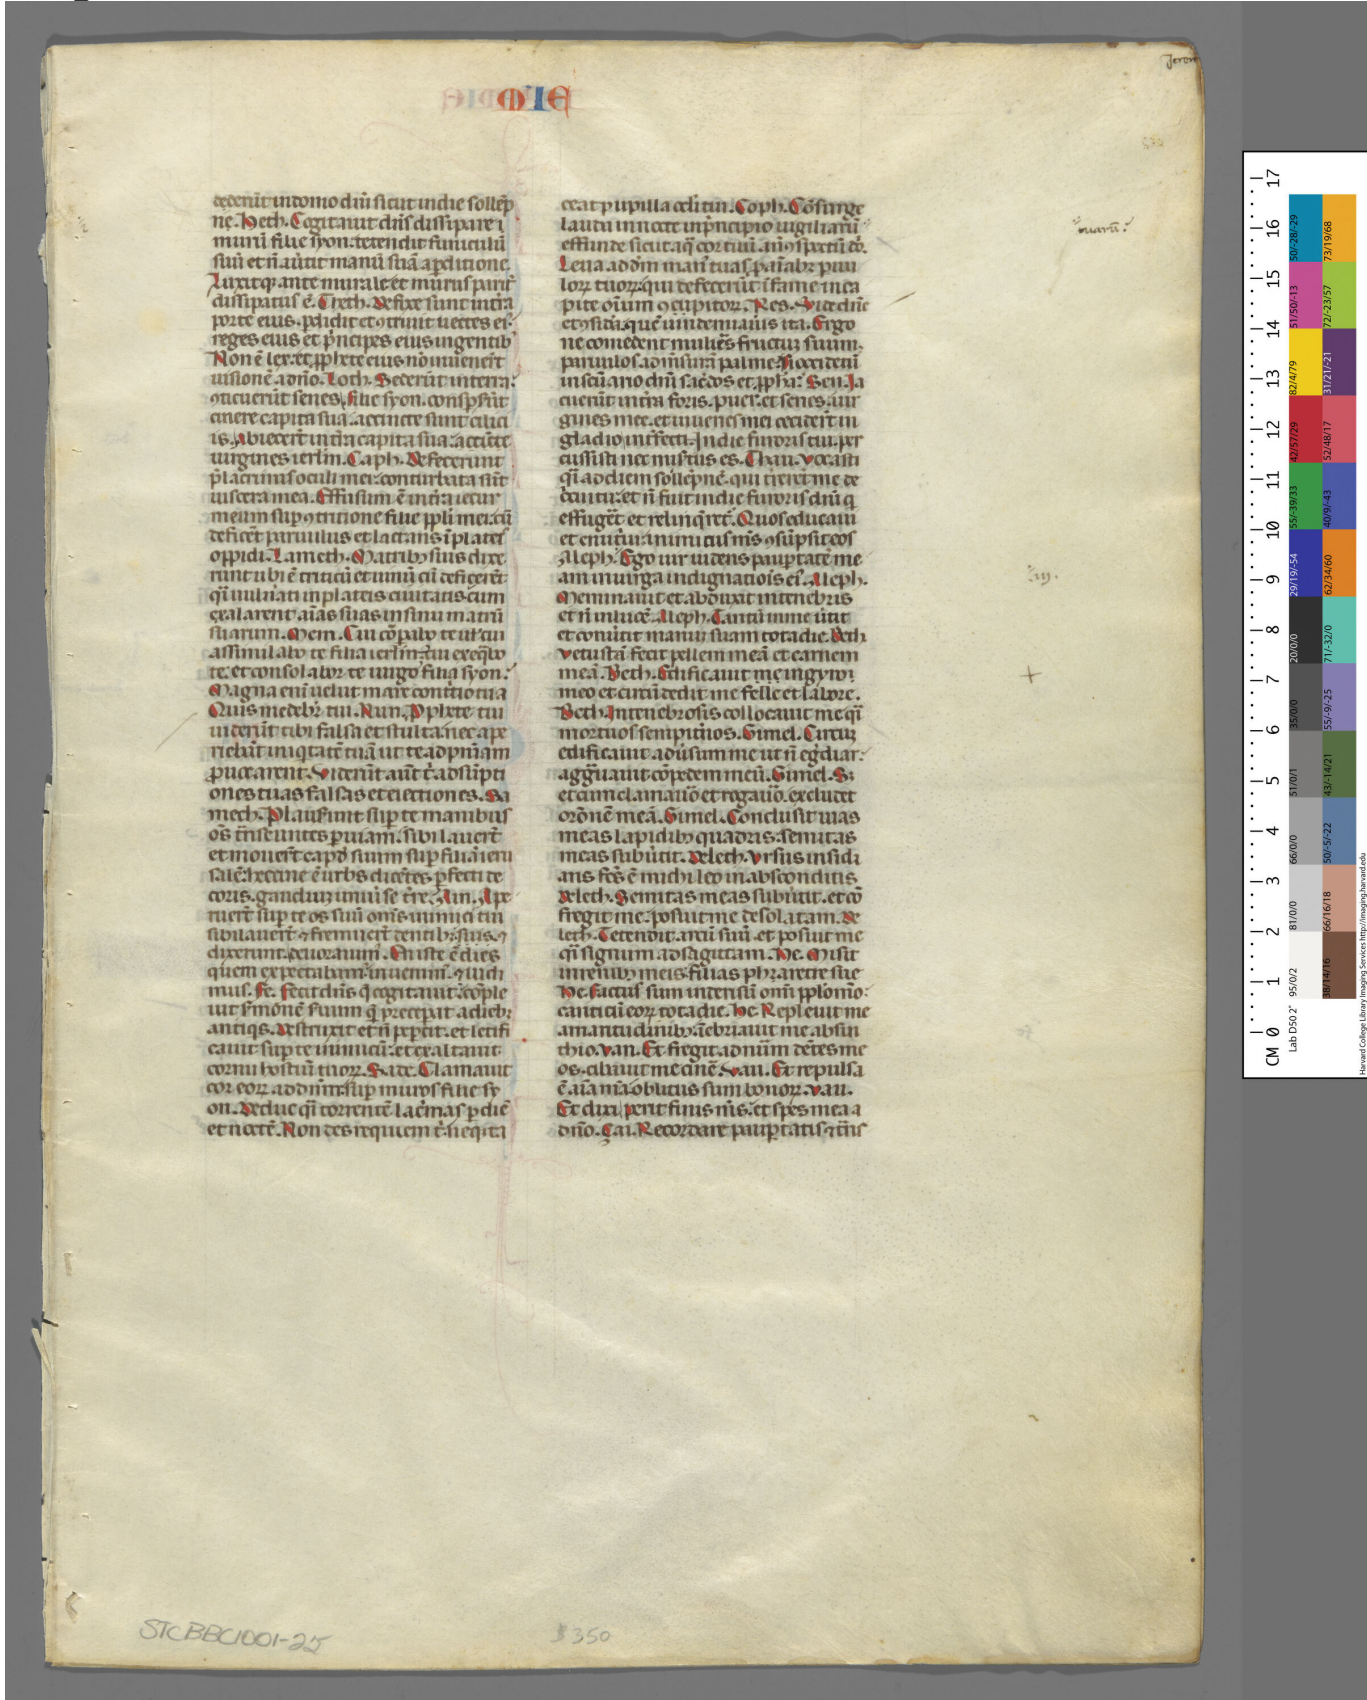 MIE
Jerem
dederūt in domo dn̄i sicut in die sollēp
ne. Heth. Cogitauit dn̄s dissipare
murū filie syon: tetendit funiculū
suū et n̄ au̇tit manū suā a p̱ditione.
Luxitq; ante murale et murus parit̉
dissipatus ē. Treth. Defixe sunt in tr̄a
porte eius. p̱didit et ꝯtriuit uectes ei᷒
reges eius et p̓ncipes eius in gentib᷒
Non ē lex: et ꝓphete eius nō inuenert̄
uisionē a dn̄o. Ioth. Sederūt in terra:
ꝯticuerūt senes filie syon. conspserūt
cinere capita sua: accincte sunt cilici
is. Abiecert̄ in tr̄a capita sua:
uirgines ierlm̄. Caph. Defecerunt
p̄ lacrimis oculi mei: conturbata sūt
uiscera mea. Effusum ē in tr̄a iecur
meum sup ꝯtritione filie ppl̄i mei: cū
deficeret paruulus et lactans ī plateis
oppidi. Lameth. Matrib᷒ suis dixe
runt ubi ē triticū et uinū cū deficerēt
q̄i uulnati in plateis ciuitatis: cum
exalarent aīas suas in sinu matrū
suarum. Mem. Cui cōpabo te ul̄ cui
assimilabo te filia ierlm̄: cui exeq̄bo
te. et consolabor te uirgo filia syon:
Magna eni uelut mare contritio tua
Quis medebit̉ tui. Nun. Pphete tui
uiderūt tibi falsa et stulta. nec ape
riebāt iniq̇tatē tuā ut te ad pn̄iam
ꝓuocarent. Viderūt aut̄ t̄ adsūpti
ones tuas falsas et eiectiones. Sa
mech. Plauserunt sup te manibus
os̄ tn̄seuntes p̱ uiam. sibilauert̄
et mouert̄ capd̄ suum sup filiā ieru
salē: heccine ē urbs dicētes p̱fecti de
coris. gaudium uniuīse tr̄e. Ain. Ape
ruert̄ sup te os suū om̄s inimici tui
sibilauert̄ ⁊ fremuert̄ dentib᷒ suis. ⁊
dixerunt. deuorauim᷒. En iste ē dies
quem expectabam᷒ inuenim᷒. ⁊ uidi
mus. Fe. Fecit dn̄s q̄ cogitauit: cōple
uit s̓monē suum q̄ p̄ceperat a dieb᷒
antiq̇s. Destruxit et n̄ pep̱cit. et letifi
cauit sup te inimicū: et exaltauit
cornu hostiū tuoꝝ. Sade. Clamauit
cor eoꝝ ad dn̄m: sup muros filie sy
on. Deduc q̄i torrentē lac̓mas p̱ diē
et noctē. Non des requiem t̄: neq̨ ta
ceat pupilla oc̄li tui. Coph. Cōsurge
lauda in nocte in p̓ncipio uigiliarū
effunde sicut aq̄ cor tuū an̄ ꝯspectū dn̄i.
Leua ad dn̄m man᷒ tuas: p̱ aīab᷒ paruu
loꝝ tuoꝝ: qui defecerūt ī fame in ca
pite oīum ꝯpitoꝝ. Res. Vide dn̄e
et ꝯsida. quē uindemiau̇is ita. Ergo
ne comedent mulīes fructum suum.
paruulos ad m̄surā palme: si occidetur
in scūario dn̄i sac̄dos et ꝓpha: Sen. Ia
cuerūt in tr̄a foris. puer. et senes. uir
gines mee. et iuuenes mei cecidert̄ in
gladio: inf̄fecti. In die furoris tui. per
cussisti nec misertus es. Thau. Vocasti
q̄i ad diem sollēpnē. qui tererēt me de
circuitu: et n̄ fuit in die furoris dn̄i q̇
effuget̄ et relinq̄ret̄. Quos educaui
et enutriui: inimicus m̄s ꝯsūpsit eos
Aleph. Ego uir uidens paup̱tatē me
am in uirga indignatiois ei᷒. Aleph.
Me minauit et abduxit in tenebris
et n̄ in lucē. Aleph. Tantū in me u̇tit
et conu̇tit manum suam tota die. Beth
Vetustā fecit pellem meā et carnem
meā. Beth. Edificauit me in gyro
meo et circūdedit me felle et labore.
Beth. In tenebrosis collocauit me q̄i
mortuos sempit̄nos. Gimel. Circum
edificauit adu̇sum me ut n̄ eg̓diar:
agg̓uauit cōpedem meū. Gimel. Sꝫ
et cum clamau̇o et rogau̇o. excludet
or̄onē meā. Gimel. Conclusit uias
meas lapidib᷒ quadris: semitas
meas subu̇tit. Deleth. Vrsus insidi
ans fc̄s ē michi leo in absconditis
Deleth. Semitas meas subu̇tit. et cō
fregit me. posuit me desolatam. De
leth. Tetendit arcū suū. et posuit me
q̄i signum ad sagittam. He. Misit
in renib᷒ meis filias pharetre sue
He. Factus sum in derisū om̄i pplo m̄o:
canticū eoꝝ tota die. He. Repleuit me
amaritudinib᷒. īebriauit me absin
thio. Vau. Et fregit ad nūm dētes me
os. cibauit me cinē. Vau. Et repulsa
ē aīa m̄a: oblitus sum bonoꝝ. Vau.
Et dixi periit finis m̄s. et spes mea a
dn̄o. Zai. Recordare paup̱tatis ⁊ tn̄s
tuarū:
iij.
+
STCBBC1001-25
$350
CM 0 1 2 3 4 5 6 7 8 9 10 11 12 13 14 15 16 17
Lab D50 2° 95/0/2 81/0/0 66/0/0 51/0/1 35/0/0 20/0/0 29/19/-54 55/-39/33 42/57/29 82/4/79 51/50/-13 50/-28/-29
38/14/16 66/16/18 50/-5/-22 43/-14/21 55/-9/-25 71/-32/0 62/34/60 40/9/-43 52/48/17 31/21/-21 72/-23/57 73/19/68
Harvard College Library Imaging Services http://imaging.harvard.edu